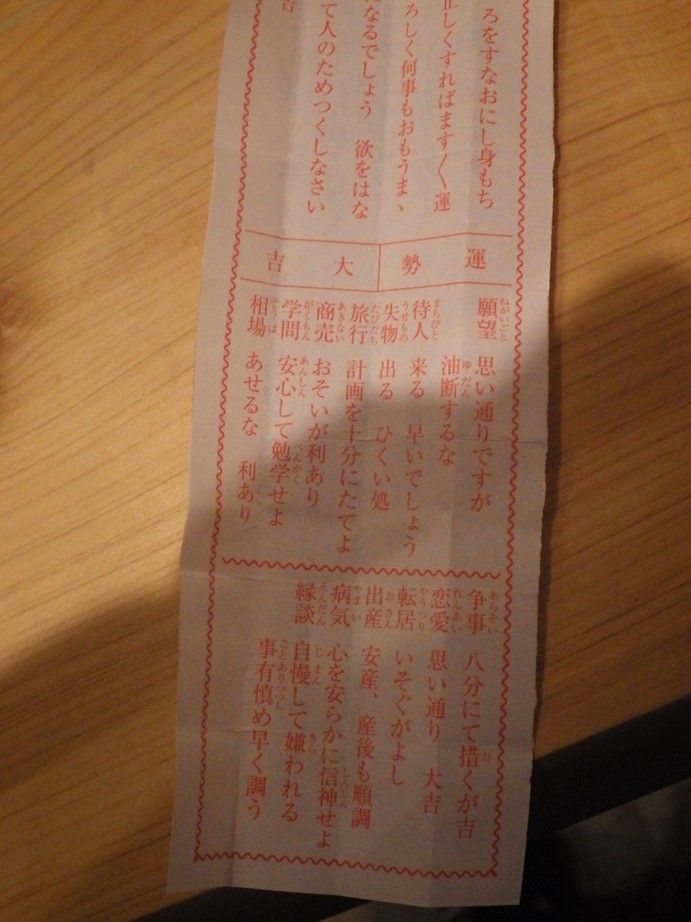 ろをすなおにし身もち
正しくすればます〱運
ろしく何事もおもうまゝ
なるでしょう 欲をはな
て人のためつくしなさい
吉
運勢 大吉
願望 思い通りですが
油断するな
待人 来る 早いでしょう
失物 出る ひくい処
旅行 計画を十分にたてよ
商売 おそいが利あり
学問 安心して勉学せよ
相場 あせるな 利あり
争事 八分にて措くが吉
恋愛 思い通り 大吉
転居 いそぐがよし
出産 安産、産後も順調
病気 心を安らかに信神せよ
縁談 自慢して嫌われる
事有慎め早く調う